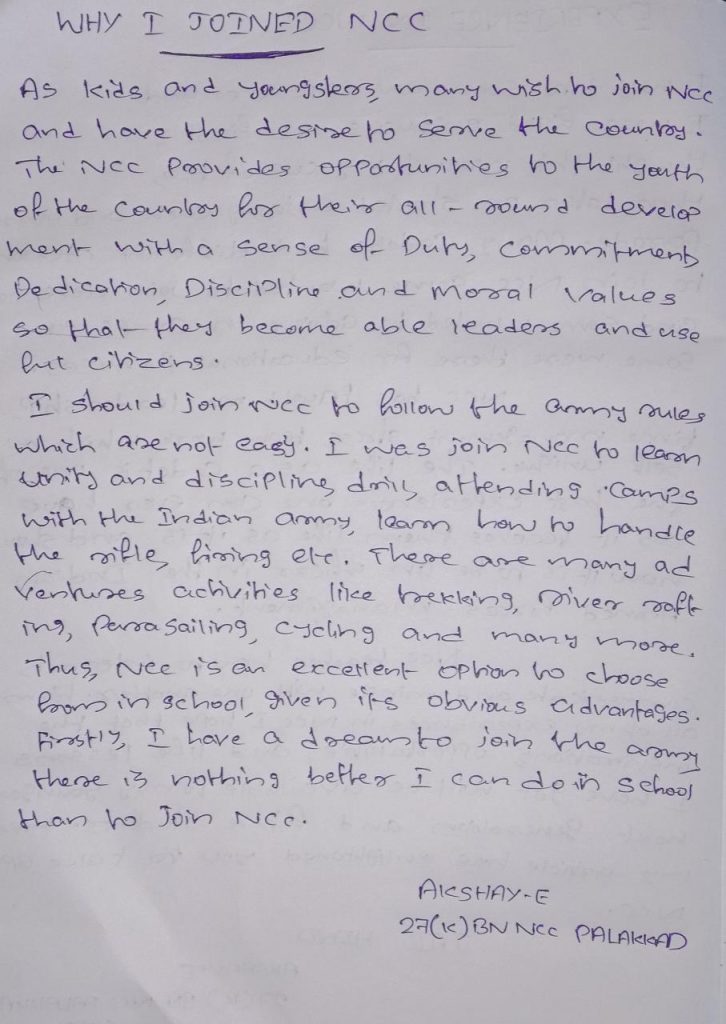 WHY I JOINED NCC
As kids and youngsters, many wish to join NCC
and have the desire to serve the country.
The NCC Provides opportunities to the youth
of the country for their all-round develop
ment with a sense of Duty, commitment,
Dedication, Discipline and moral values
so that they become able leaders and use
ful citizens.
I should join NCC to follow the army rules
which are not easy. I was join NCC to learn
unity and discipline, drill, attending camps
with the Indian army, learn how to handle
the rifle, firing etc. There are many ad
ventures activities like trekking, river raft
ing, Parra sailing, cycling and many more.
Thus, NCC is an excellent option to choose
from in school, given its obvious advantages.
Firstly, I have a dream to join the army
there is nothing better I can do in school
than to Join NCC.
AKSHAY-E
27(K)BN NCC PALAKKAD